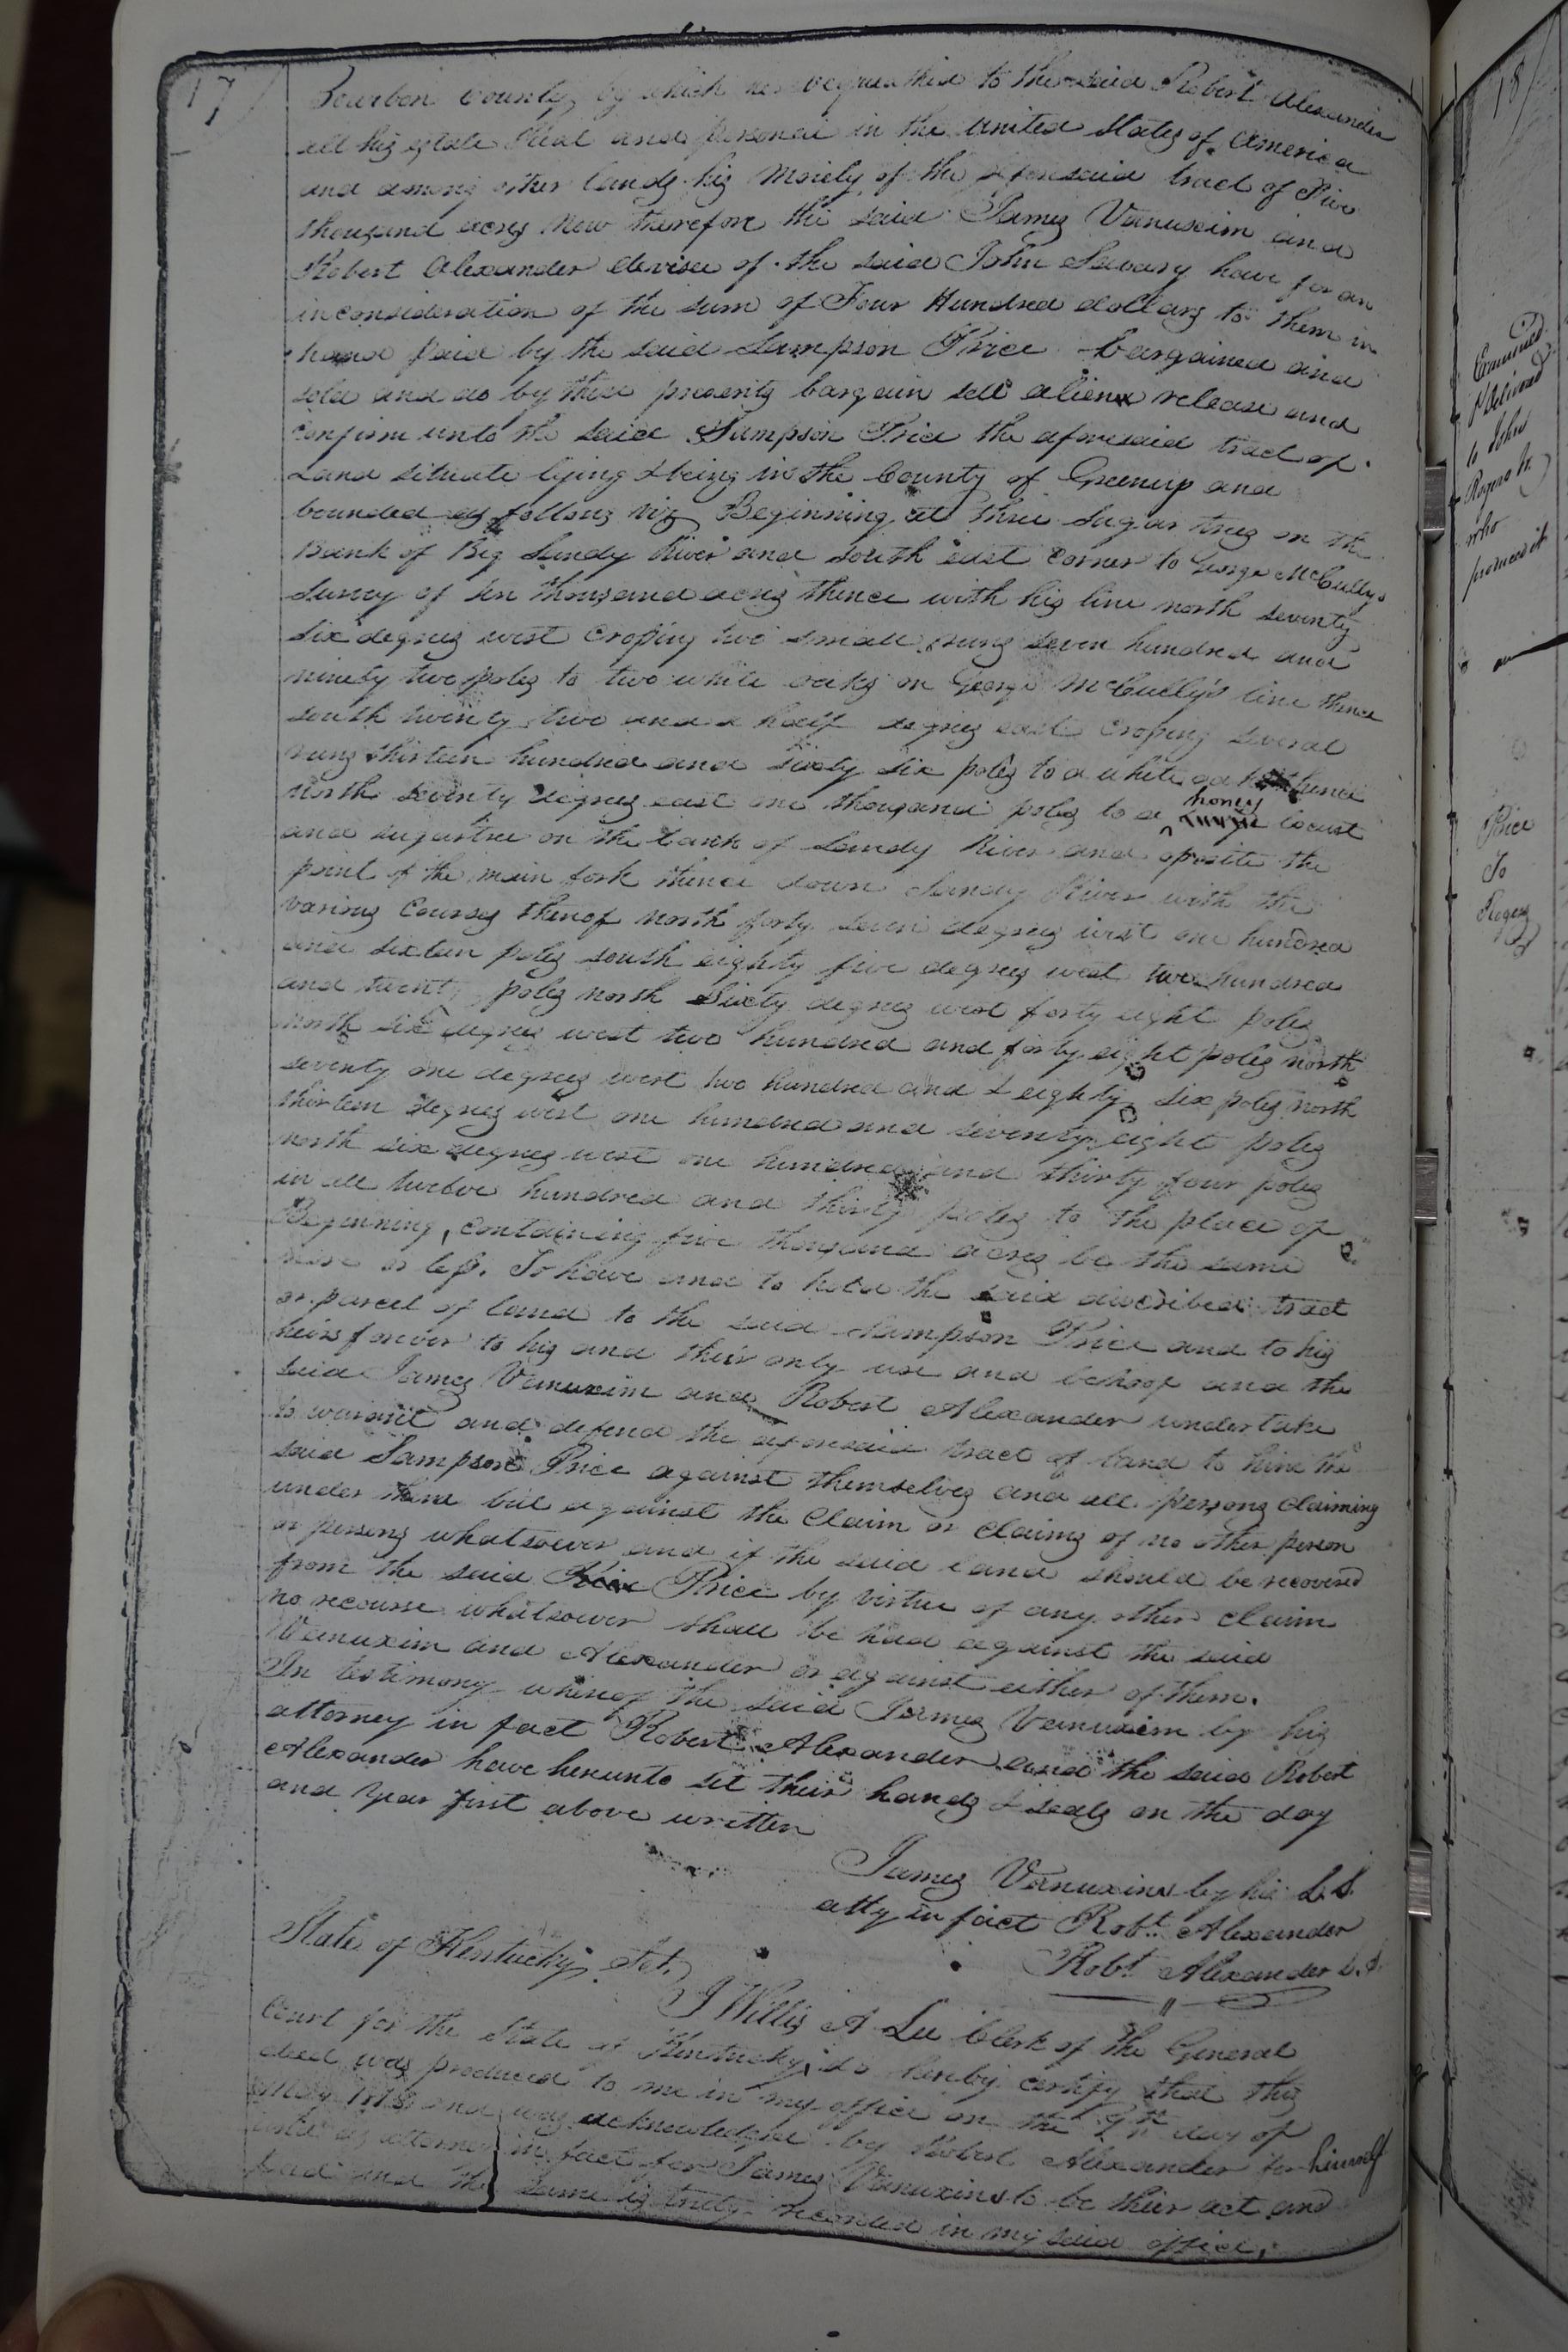 17
Bourbon County, by which he bequeathed to the said Robert Alexander
all his estate Real and personal in the United States of America
and among other lands his Moiety of the aforesaid tract of Five
thousand acres Now therefore the said James Vanuxeim and
Robert Alexander devisee of the said John Savary have for an
in consideration of the sum of Four Hundred dollars to them in
hand paid by the said Sampson Price bargained and
sold and do by these presents bargain sell alien release and
confirm unto the said Sampson Price the aforesaid tract of
Land situate lying & being in the County of Greenup and
bounded as follows viz Beginning at three Sugar trees on the
Bank of Big Sandy River and south east corner to George McCullys
Survey of ten thousand acres thence with his line north seventy
six degrees west Croping two small runs seven hundred and
ninety two poles to two white oaks on George McCully's line thence
south twenty two and a half degrees east Croping several
runs thirteen hundred and sixty six poles to a white oak thence
North seventy degrees east one thousand poles to a honey locust
and sugartree on the bank of Sandy River and oposite the
point of the main fork thence down Sandy River with the
various Courses thereof North forty seven degrees west one hundred
and sixteen poles south eighty five degrees west two hundred
and twenty poles north Sixty degrees west forty eight poles
North six degrees west two hundred and forty eight poles north
seventy one degrees west two hundred and & eighty six poles north
thirteen degrees west one hundred and seventy eight poles
north six degrees west one hundred and thirty four poles
in all twelve hundred and thirty poles to the place of
Beginning, containing five thousand acres be the same
more or less. To have and to hold the said discribed tract
or parcel of land to the said Sampson Price and to his
heirs forever to his and their only use and behoof and the
said James Vanuxeim and Robert Alexander undertake
to warrant and defend the aforesaid tract of land to him the
said Sampson Price against themselves and all persons claiming
under them but against the Claim or claims of no other person
or persons whatsoever and if the said land should be recovered
from the said Price by virtue of any other claim
no recourse whatsoever shall be had against the said
Vanuxim and Alexander or against either of them.
In testimony whereof the said James Vanuxem by his
attorney in fact Robert Alexander and the said Robert
Alexander have hereunto set their hands & seals on the day
and year first above written
James Vanuxem by his L.S.
atty in fact Robt. Alexander
Robt. Alexander L.S.
State of Kentucky Sct.
I Willis A Lee Clerk of the General
Court for the State of Kentucky, do hereby certify that this
deed was produced to me in my office on the 9th day of
May 1818 and was acknowledged by Robert Alexander for himself
and as attorney in fact for James Vanuxem to be their act and
deed and the same is truly recorded in my said office.
18
Examined
& delivered
to John
Rogers Jr.
who
produced it
Price
To
Rogers